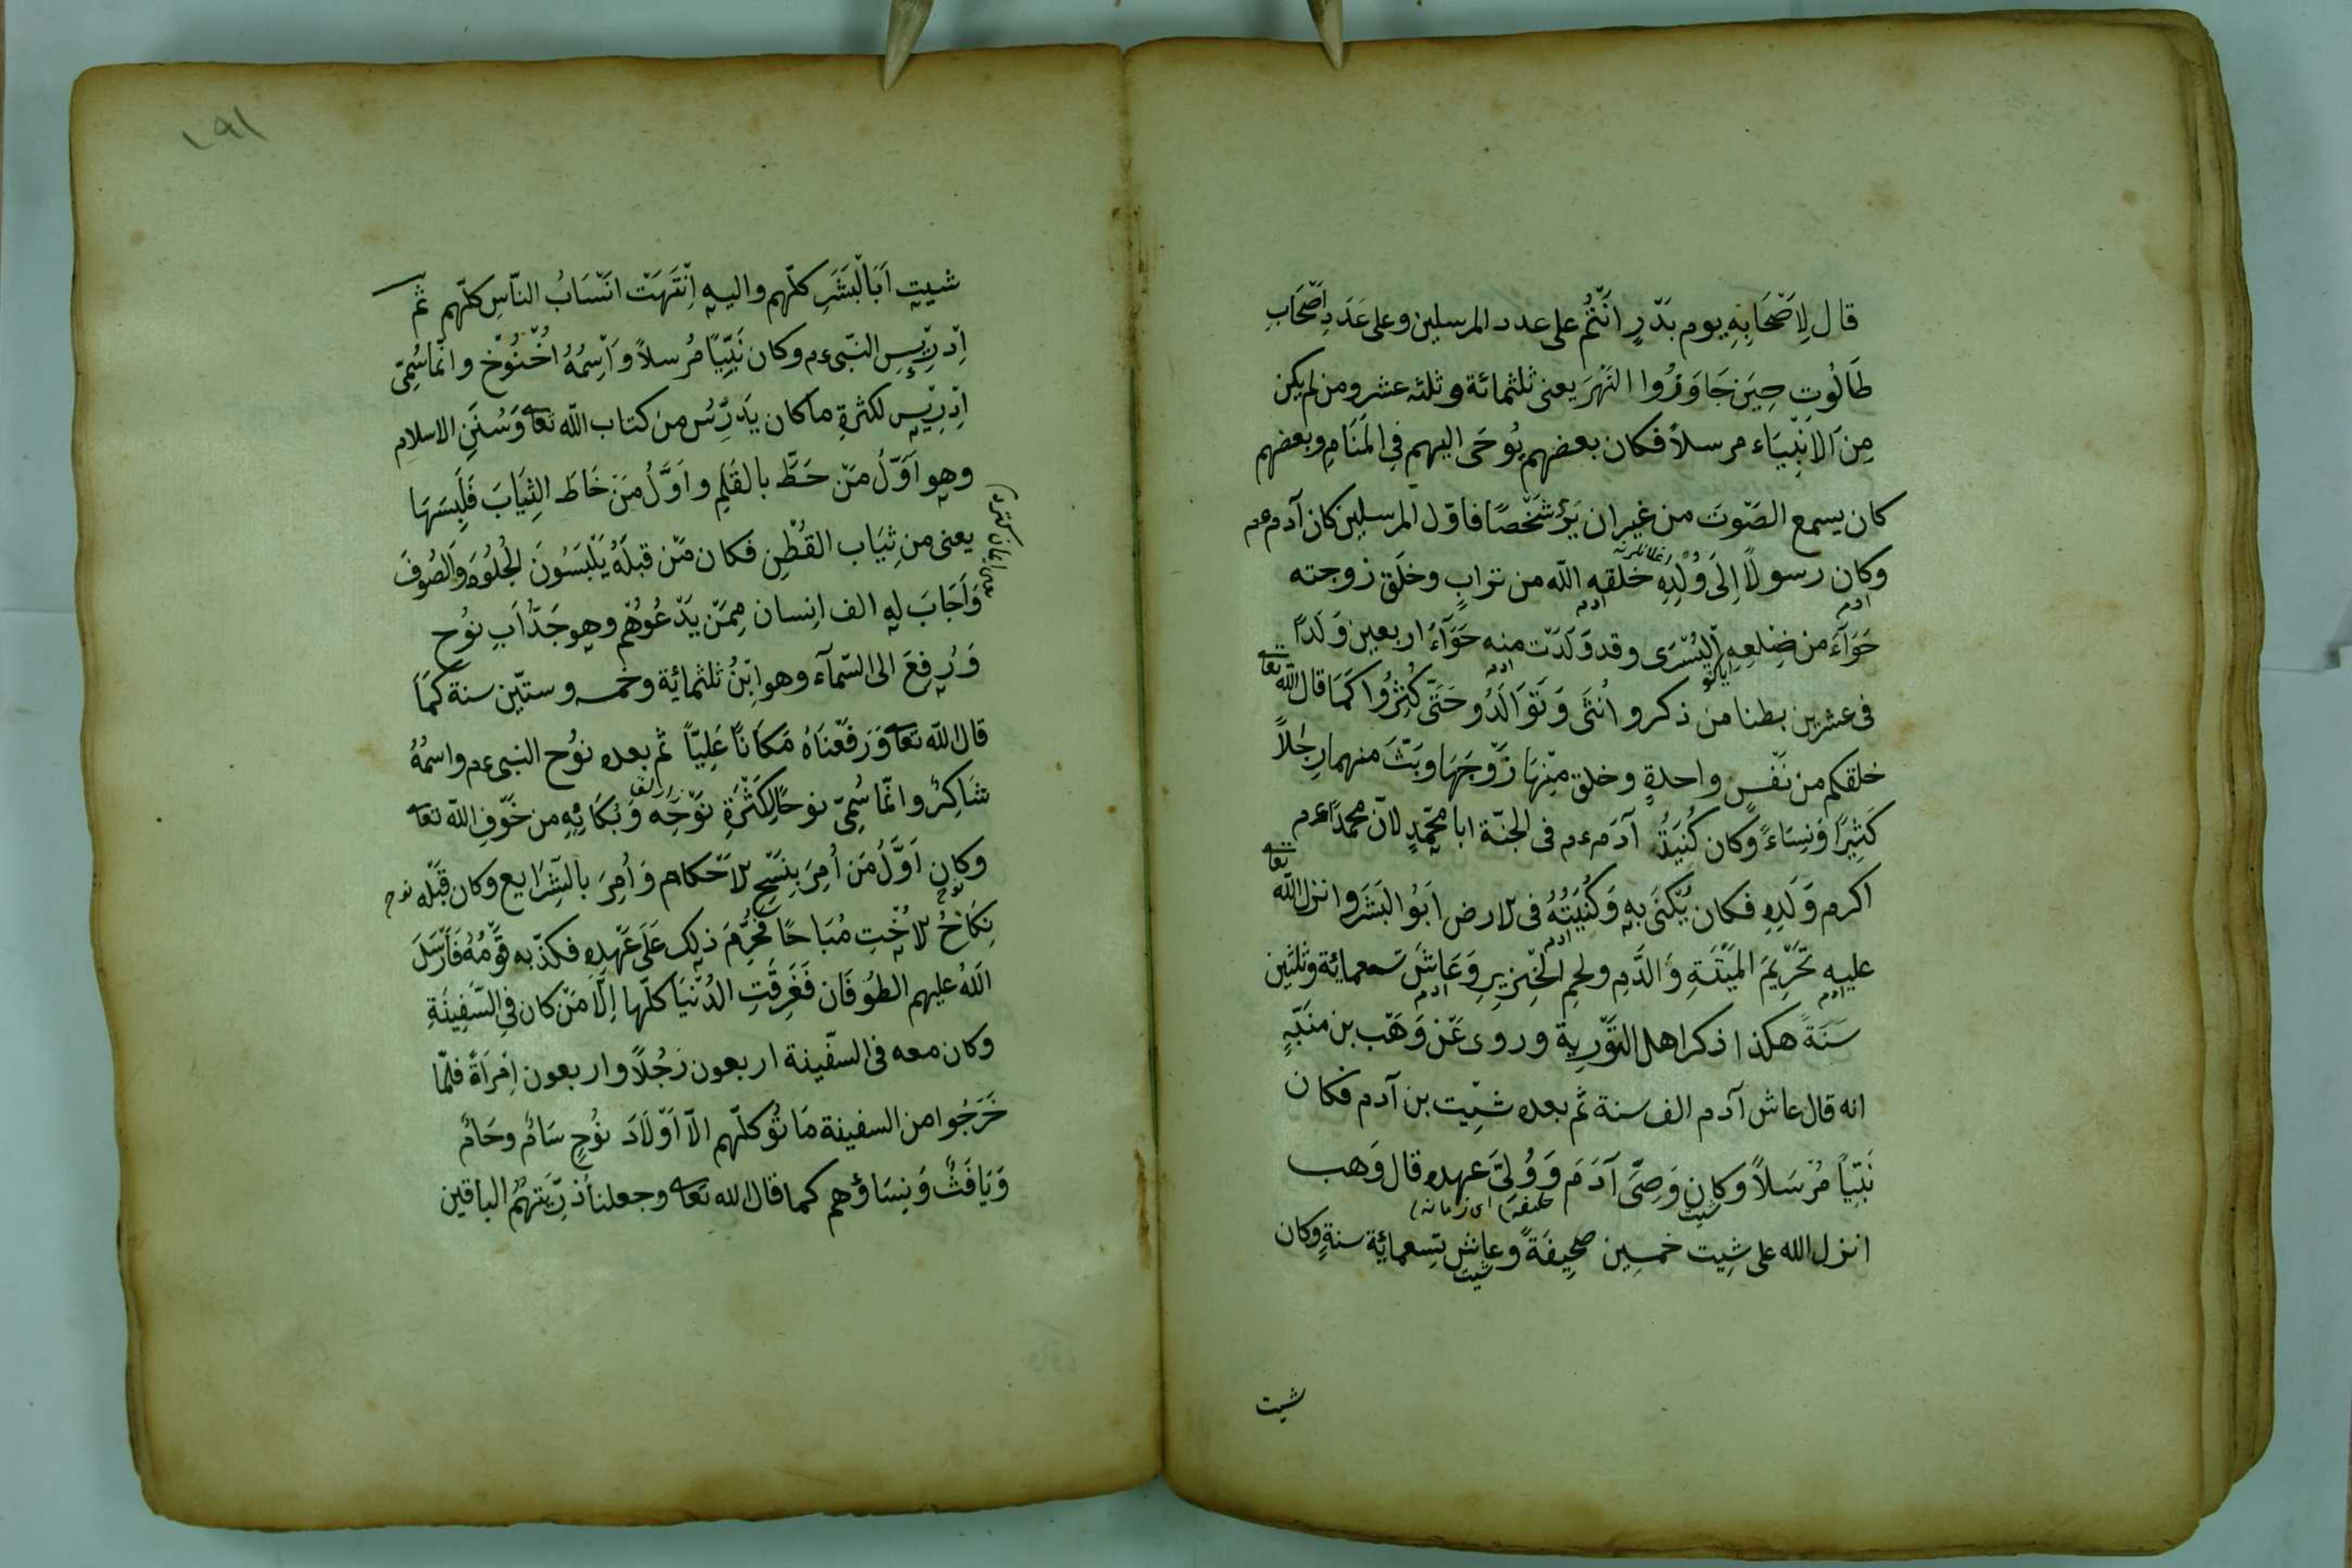 قال لِاَصْحَابِهِ يوم بَدْرٍ اَنْتُمْ على عدد المرسلين وعلى عَدَدِ اَصْحَابِ
طَالُوتِ حِينَ جَاوَزُوا النَّهْرَ يعنى ثلثمائة وثلثه عشر ومن لم يكن
مِنَ الاَنْبِيَاء مرسلاً فكان بعضهم يُوحَى اليهم فِى المَنَامِ وبعضهم
كان يسمع الصَّوتَ من غير ان يَرَىْ شَخْصًا فاوّل المرسلين كان آدم عم
وكان رسولاً اِلَى وُلْدِهِ خلقه الله من ترابٍ وخلَق زوجته
حَوَآءَ من ضِلعِهِ اليُسْرَى وقد وَلَدَتْ منه حَوَّآءُ اربعين وَلَدًا
فى عشرين بطنا من ذكر و اُنْثَى وَتَوَالَدُو حَتَّى كُثِرُوا كَمَا قال الله تعا
خلقكم من نَفْسٍ واحدةٍ وخلق مِنْهَا زَوْجَهَا وبَثَّ منهما رِجَالاً
كَثِيرًا وَنِسَاءً وكان كُنْيَةُ آدَمَ عم فى الجنّة ابا محمّدٍ لانّ محمدًا عم
اكرم وَلَدِهِ فكان يُكْنَى بِهِ وَكُنْيَتُهُ فى الارض اَبُو البَشَرِ وانزل الله تعا
عليه تَحْرِيمَ المَيْتَةِ وَالدَّمِ ولحمِ الخِنْزِيرِ وَعَاشَ تسعمائة وثلثين
سَنَةً هكذا ذكر اهل التَّوْرِية وروى عَنْ وَهْب بن منبّهٍ
انه قال عاش آدم الف سنة ثم بعده شِيْت بن آدم فكان
نَبِيّاً مُرْسَلاً وكان وَصِىَّ آدَمَ وَوُلِىَّ عهده قال وَهب
انزل الله على شِيت خمسِين صَحِيفَةً وعاش تِسعمائِة سنةٍ وكان
شيت
١٩١
شيت اَبَا الْبَشَرِ كلّهم واليه اِنْتَهَتْ انْسَابُ النّاسِ كلّهم ثمّ
اِدْرِيسِ النّبى عم وكان نَبِيّاً مُرسلاً وَاسِمُهُ اُخْنُوْخ وانّما سُمِّىَ
اِدْرِيْسِ لكثرةِ ما كان يَدْرُسُ من كتاب الله تعا وَسُنَنِ الاسلام
وهو اَوَّلُ مَنْ خَطَّ بالقَلَمِ و اَوَّلُ مَنْ خَاطَ الثِّيَابَ فَلَبِسَهَا
يعنى من ثِيَاب القُطْنِ فكان مَنْ قبلَهُ يَلْبَسُونَ الجُلُودَ وَالصُوفَ
وَاَجَابَ له الف اِنسان مِمَّنْ يَدْعُوْهُمْ وهو جَدُّ اَبِ نُوْح
وَرُفِعَ الى السّمآء وهو اِبْنُ ثلثمائِة وخمسه وستّين سنة كَمَا
قال الله تعا وَرَفَعْنَاهُ مَكَانًا عَلِيّاً ثمّ بعده نوُح النبى عم واسمُهُ
شَاكِرُ وانّما سُمِّىَ نوحًا لِكَثْرَةِ نَوْحِهِ وَبُكَائِهِ من خَوْفِ الله تعا
وكان اَوَّلُ مَن اُمِرَ بِنَسْخِ الاَحْكام وَاُمِرَ بالشَّرَايع وكان قَبْلَه
نِكَاحُ الاُخْتِ مُبَاحًا فَحُرِّمَ ذلك عَلَى عَهْدِهِ فكذّبه قَوْمُهُ فَاَرْسَلَ
اللهُ عليهم الطوُفَان فَغَرِقَتِ الدُنْيَا كلّها اِلاَّ مَنْ كان فِى السَّفِينَةِ
وكان معه فى السّفينة اربعون رَجُلاً واربعون اِمْرَاَةً فلمّا
خَرَجُوا من السفينة مَاتُو كلّهم الاّ اَوْلاَدَ نُوْحٍ سَامُ وحَامُ
وَيَافَثُ وَنِسَاؤهم كما قال الله تعا وجعلنا ذرِّيتهُمُ الباقين